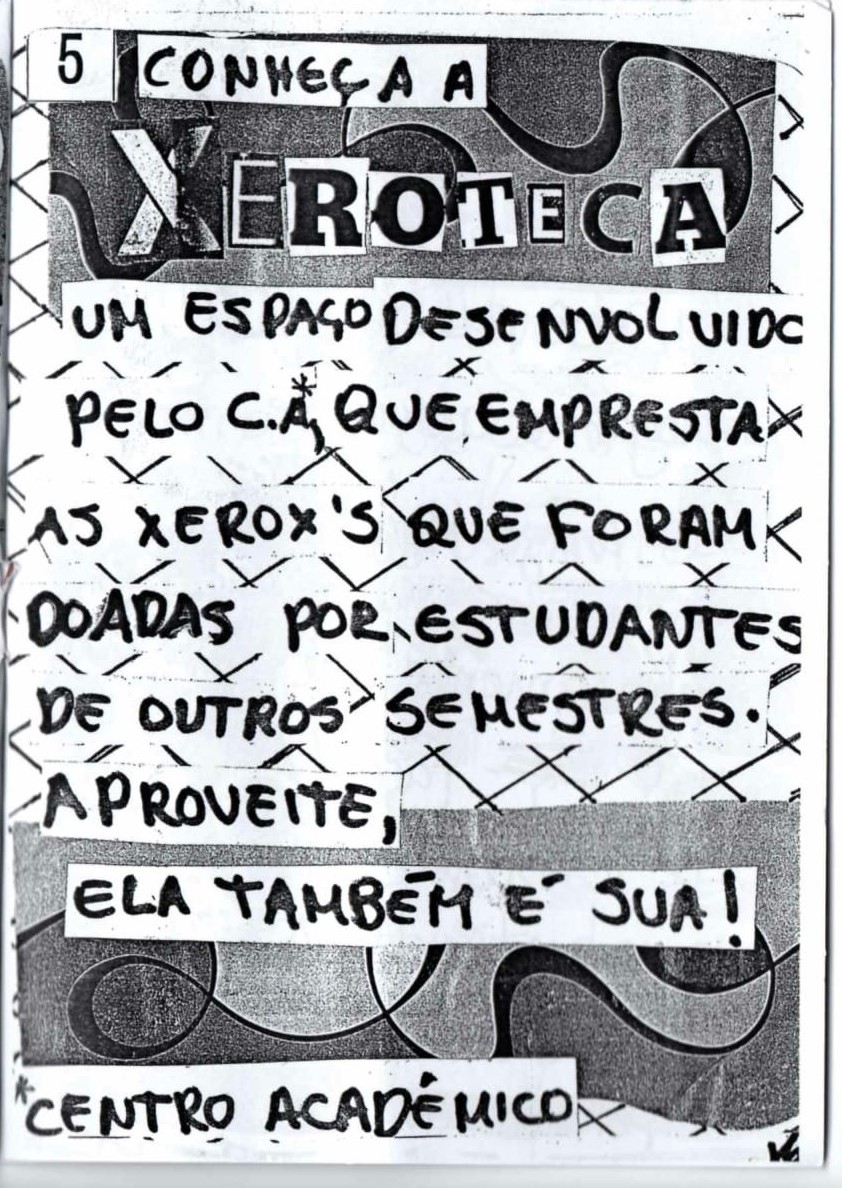 5 CONHEÇA A
XEROTECA
UM ESPAÇO DESENVOLVIDO
PELO C.A*, QUE EMPRESTA
AS XEROX'S QUE FORAM
DOADAS POR ESTUDANTES
DE OUTROS SEMESTRES.
APROVEITE,
ELA TAMBÉM É SUA!
*CENTRO ACADÊMICO